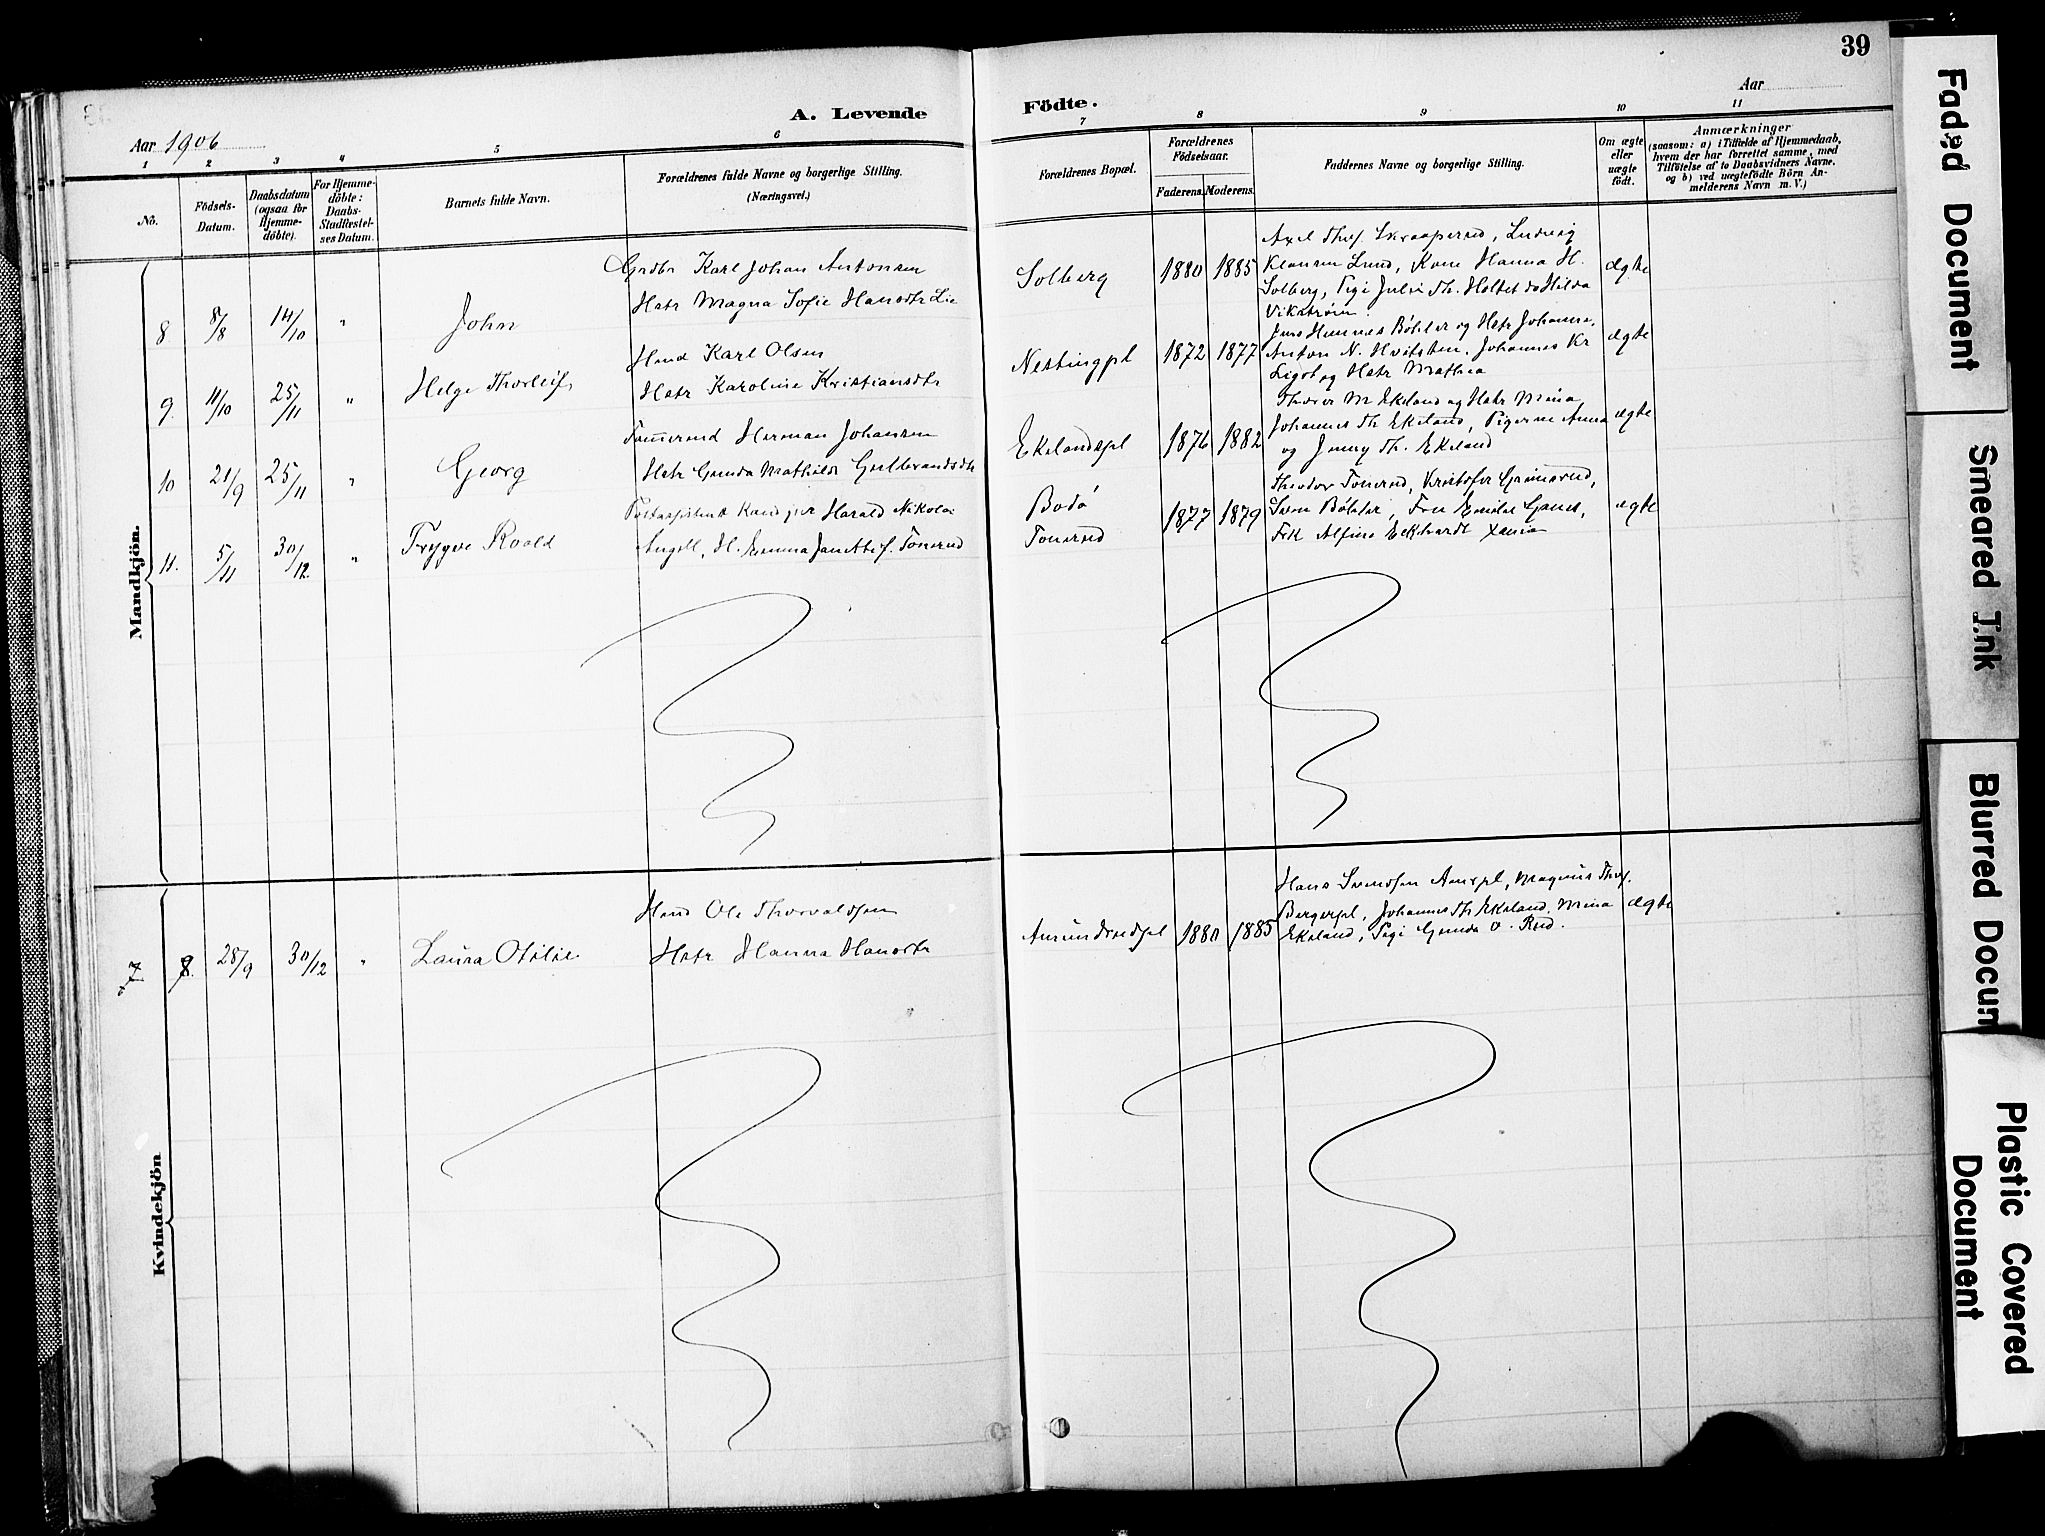 39
A. Levende Födte.
Aar 1906
Aar
1 2 3 4 5 6 7 8 9 10 11
No.
Födsels-
Datum.
Daabsdatum
(ogsaa for
Hjemme-
döbte).
For Hjemme-
döbte:
Daabs-
Stadfæstel-
ses Datum.
Barnets fulde Navn.
Forældrenes fulde Navne og borgerlige Stilling.
(Næringsvei.)
Forældrenes Bopæl.
Forældrenes
Födselsaar.
Faderens. Moderens.
Faddernes Navne og borgerlige Stilling.
Om ægte
eller
uægte
født.
Anmærkninger
(saasom: a) i Tilfælde af Hjemmedaab,
hvem der har forrettet samme, med
Tilföielse af to Daabsvidners Navne.
og b) ved uægtefödte Börn An-
melderens Navn m. V.)
Mandkjön.
8 8/8 14/10 " John
Grdbr Karl Johan Antonsen
Hstr Magna Sofie Hansdtr Lie
Solberg 1880 1885
Axel Thvf. Skraaperud, Ludvig
Klausen Lund, Kone Hanna H.
Solberg, Pige Julie Th. Holtet do Hilda
Vikstrøm.
ægte
9. 11/10 25/11 " Helge Thorleif
Hmd Karl Olsen
Hstr Karoline Kristiansdtr
Nestingpl 1872 1877
Jens Hannes Bøhler og Hstr Johanne,
Anton N. Hvitsten, Johannes Kr
og Hstr Mathea
ægte
10 21/9 25/11 " Georg
Tømmermd Herman Johansen
Hstr Gunda Mathilde Gulbrandsdtr
Ekelandspl 1876 1882
Thorer M Ekeland og Hstr Mina
Johannes Th Ekeland, Pigerne Anna
og Jenny Th. Ekeland
ægte
11. 5/11 30/12. " Trygve Roald
Harald Nikolai
Angell, H. Emma Tonerud
Bodø
Tonerud
1877 1879
Theodor Tonerud, Kristofer Grimsrud,
Sven Bøhler, Fru Emilie
Frk Alfine Eckhardt Xania
ægte
Kvindekjön
7 8. 28/9 30/12 " Laura Otilie
Hmd Ole Thorvaldsen
Hstr Hanna Hansdtr
Amundrudpl 1880 1885
Hans Svendsen Aaspl, Magnus Thvf.
Bergerpl, Johannes Th Ekeland, Mina
Ekeland, Pige Gunda O. Rud.
ægte
Faded Document
Smeared Ink
Blurred Docum
Plastic Covered
Document